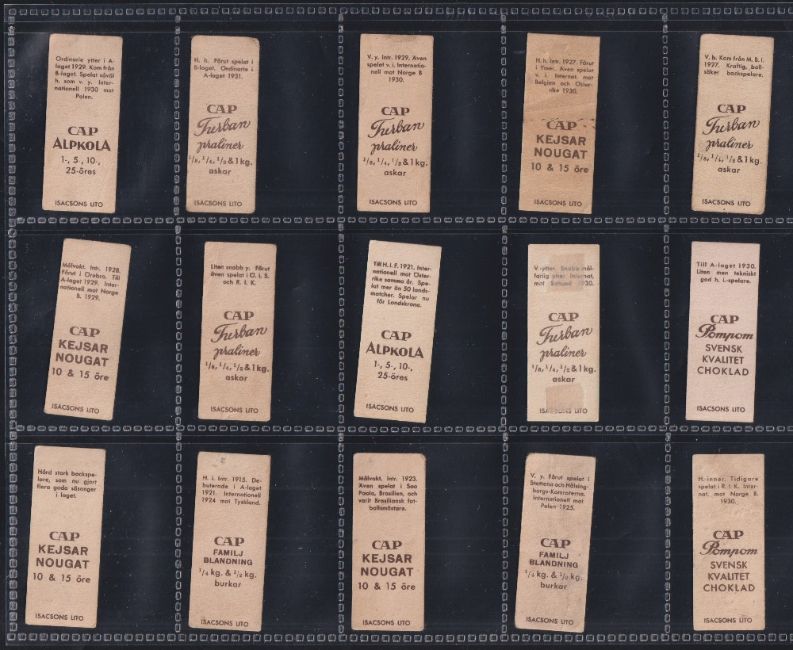 Ordinarie ytter i A-
laget 1929. Kom från
B-laget. Spelat såväl
h. som v. y. Inter-
nationell 1930 mot
Polen.
CAP
ALPKOLA
1-, 5-, 10-,
25-öres
ISACSONS LITO
H. h. Förut spelat i
B-laget. Ordinarie i
A-laget 1931.
CAP
Turban
praliner
1/8, 1/4, 1/2 & 1 kg.
askar
ISACSONS LITO
V. y. Intr. 1929. Även
spelat v. i. Internatio-
nell mot Norge B
1930.
CAP
Turban
praliner
1/8, 1/4, 1/2 & 1 kg.
askar
ISACSONS LITO
H. h. Intr. 1927. Förut
i Även spelat
v. i. Internat. mot
Belgien och Öster-
rike 1930.
CAP
KEJSAR
NOUGAT
10 & 15 öre
ISACSONS LITO
V. h. Kom från M.B.I.
1927. Kraftig, boll-
säker backspelare.
CAP
Turban
praliner
1/8, 1/4, 1/2 & 1 kg.
askar
ISACSONS LITO
Målvakt. Intr. 1928.
Förut i Örebro. Till
A-laget 1929. Inter-
nationell mot Norge
B. 1929.
CAP
KEJSAR
NOUGAT
10 & 15 öre
ISACSONS LITO
Liten snabb y. Förut
även spelat i O. I. S.
och R. I. K.
CAP
Turban
praliner
1/8, 1/4, 1/2 & 1 kg.
askar
ISACSONS LITO
Till H. I. F. 1921. Inter-
nationell mot Öster-
rike samma år. Spe-
lat mer än 50 lands-
matcher. Spelar nu
för Landskrona.
CAP
ALPKOLA
1-, 5-, 10-,
25-öres
ISACSONS LITO
V.-ytter. Snabb mål-
farlig ytter. Internat.
mot 1930.
CAP
Turban
praliner
1/8, 1/4, 1/2 & 1 kg.
askar
ISACSONS LITO
Till A-laget 1930.
Liten men tekniskt
god h. i.-spelare.
CAP
Pompom
SVENSK
KVALITET
CHOKLAD
ISACSONS LITO
Hård stark backspe-
lare, som nu gjort
flera goda säsonger
i laget.
CAP
KEJSAR
NOUGAT
10 & 15 öre
ISACSONS LITO
H. i. Intr. 1915. De-
buterade i A-laget
1921. Internationell
1924 mot Tyskland.
CAP
FAMILJ
BLANDNING
1/4 kg. & 1/2 kg.
burkar
ISACSONS LITO
Målvakt. Intr. 1923.
Även spelat i Sao
Paolo, Brasilien, och
varit Brasiliansk fot-
bollsmästare.
CAP
KEJSAR
NOUGAT
10 & 15 öre
ISACSONS LITO
V. y. Förut spelat i
Stattena och Hälsing-
borgs-Kamraterna.
Internationell mot
Polen 1925.
CAP
FAMILJ
BLANDNING
1/4 kg. & 1/2 kg.
burkar
ISACSONS LITO
H. inner. Tidigare
spelat i R. I. K. Inter-
nat. mot Norge B.
1930.
CAP
Pompom
SVENSK
KVALITET
CHOKLAD
ISACSONS LITO